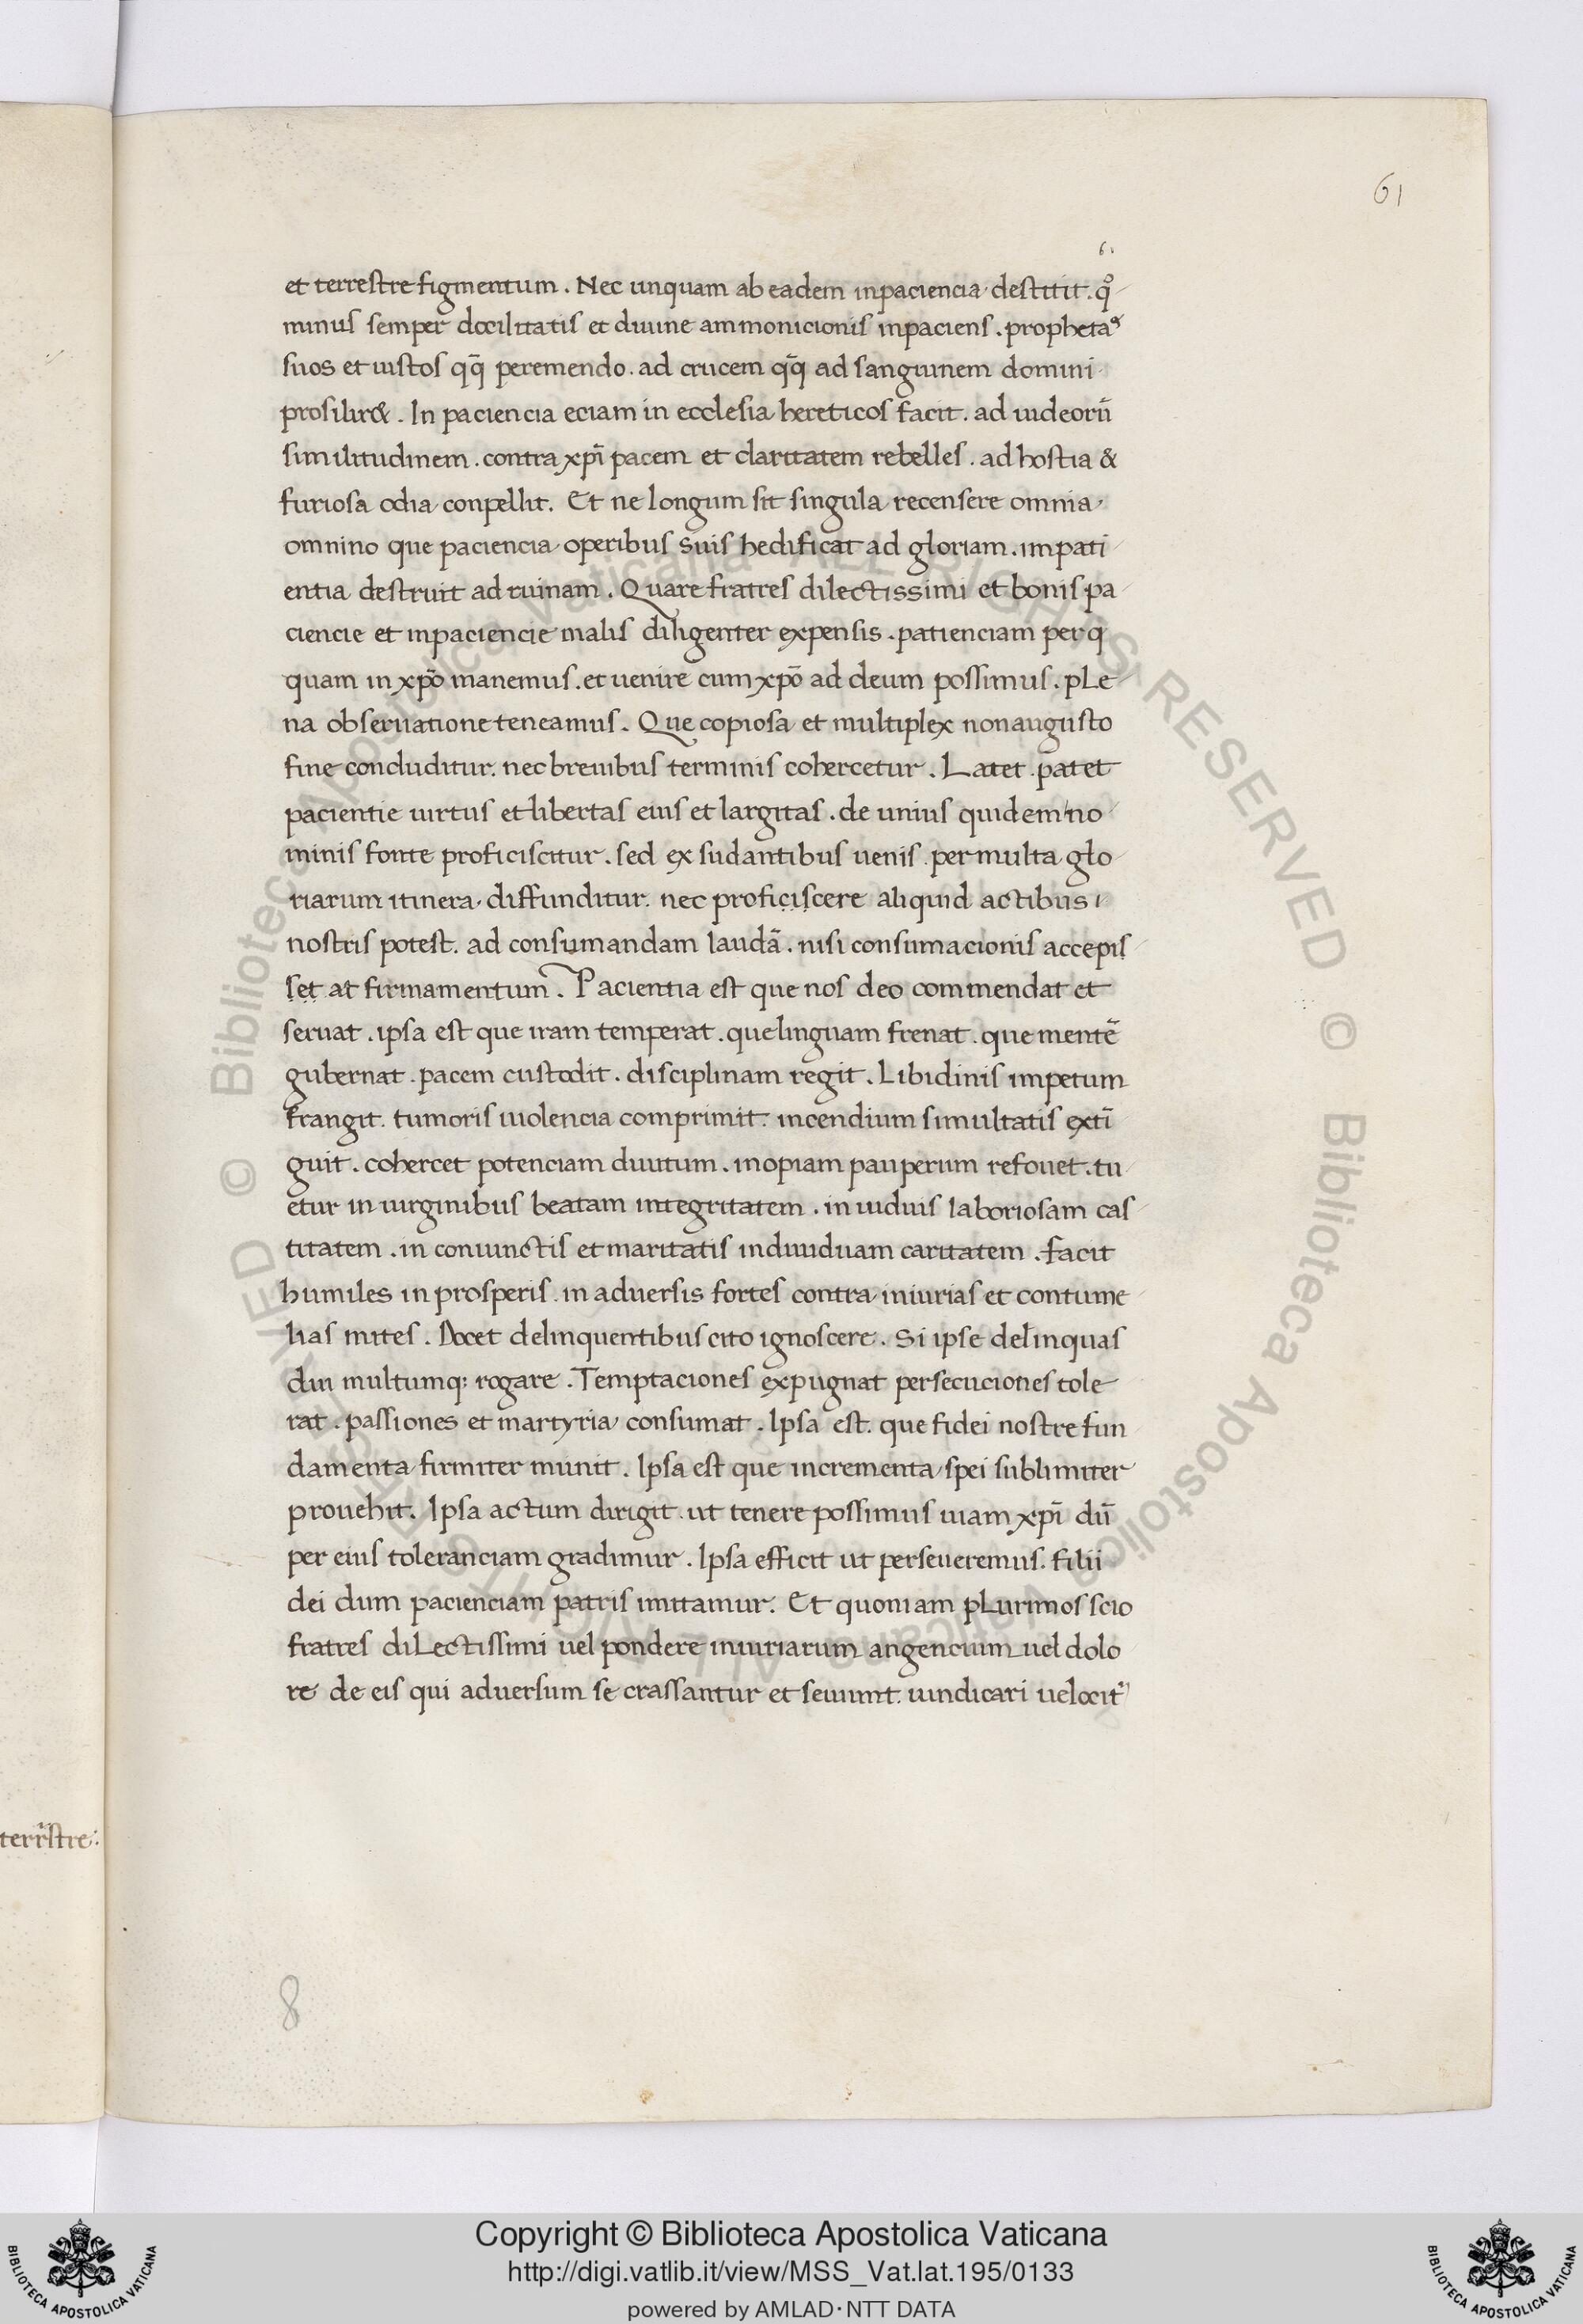 61
6.
et terrestre figmentum . Nec unquam ab eadem inpaciencia destitit . qͦ
minus semper docilitatis et diuine ammonicionis inpaciens . prophetas
suos et iustos qq̄ peremendo . ad crucem qq̄ ad sanguinem domini
prosilir& . In paciencia eciam in ecclesia hereticos facit . ad iudeorū
similitudinem . contra xp̄i pacem et claritatem rebelles . ad hostia &
furiosa odia conpellit . Et ne longum sit singula recensere omnia
omnino que paciencia operibus suis hedificat ad gloriam . impati
entia destruit ad ruinam . Quare fratres dilectissimi et bonis pa
ciencie et inpaciencie malis diligenter expensis . patienciam per q
quam in xp̄o manemus . et uenire cum xp̄o ad deum possimus . ple
na obseruatione teneamus . Que copiosa et multiplex non augusto
fine concluditur . nec breuibus terminis cohercetur . Latet . patet
pacientie uirtus et libertas eius et largitas . de unius quidem no
minis fonte proficiscitur . sed ex sudantibus uenis . per multa glo
riarum itinera diffunditur . nec proficiscere aliquid actibus i
nostris potest . ad consumandam laudā . nisi consumacionis accepis
set at firmamentum . Pacientia est que nos deo commendat et
seruat . ipsa est que iram temperat . que linguam frenat . que mentē
gubernat . pacem custodit . disciplinam regit . Libidinis impetum
frangit . tumoris uiolencia comprimit . incendium simultatis extī
guit . cohercet potenciam diuitum . inopiam pauperum refouet . tu
etur in uirginibus beatam integritatem . in uiduis laboriosam cas
titatem . in coniunctis et maritatis indiuiduam caritatem . facit
humiles in prosperis . in aduersis fortes contra iniurias et contume
lias mites . Docet delinquentibus cito ignoscere . Si ipse delinquas
diu multumq: rogare . Temptaciones expugnat persecuciones tole
rat . passiones et martyria consumat . Ipsa est . que fidei nostre fun
damenta firmiter munit . Ipsa est que incrementa spei sublimiter
prouehit . Ipsa actum dirigit . ut tenere possimus uiam xp̄i dū
per eius toleranciam gradimur . Ipsa efficit ut perseueremus . filii
dei dum pacienciam patris imitamur . Et quoniam plurimos scio
fratres dilectissimi uel pondere iniuriarum angencium uel dolo
re de eis qui aduersum se crassantur et seuiunt . uindicari uelocit᾽
terrestre :
8
© Biblioteca Apostolica Vaticana ALL RIGHTS RESERVED © Biblioteca Apostolica Vaticana ALL RIGHTS RESERVED
Copyright © Biblioteca Apostolica Vaticana
http://digi.vatlib.it/view/MSS_Vat.lat.195/0133
powered by AMLAD·NTT DATA
BIBLIOTECA APOSTOLICA VATICANA
BIBLIOTECA APOSTOLICA VATICANA